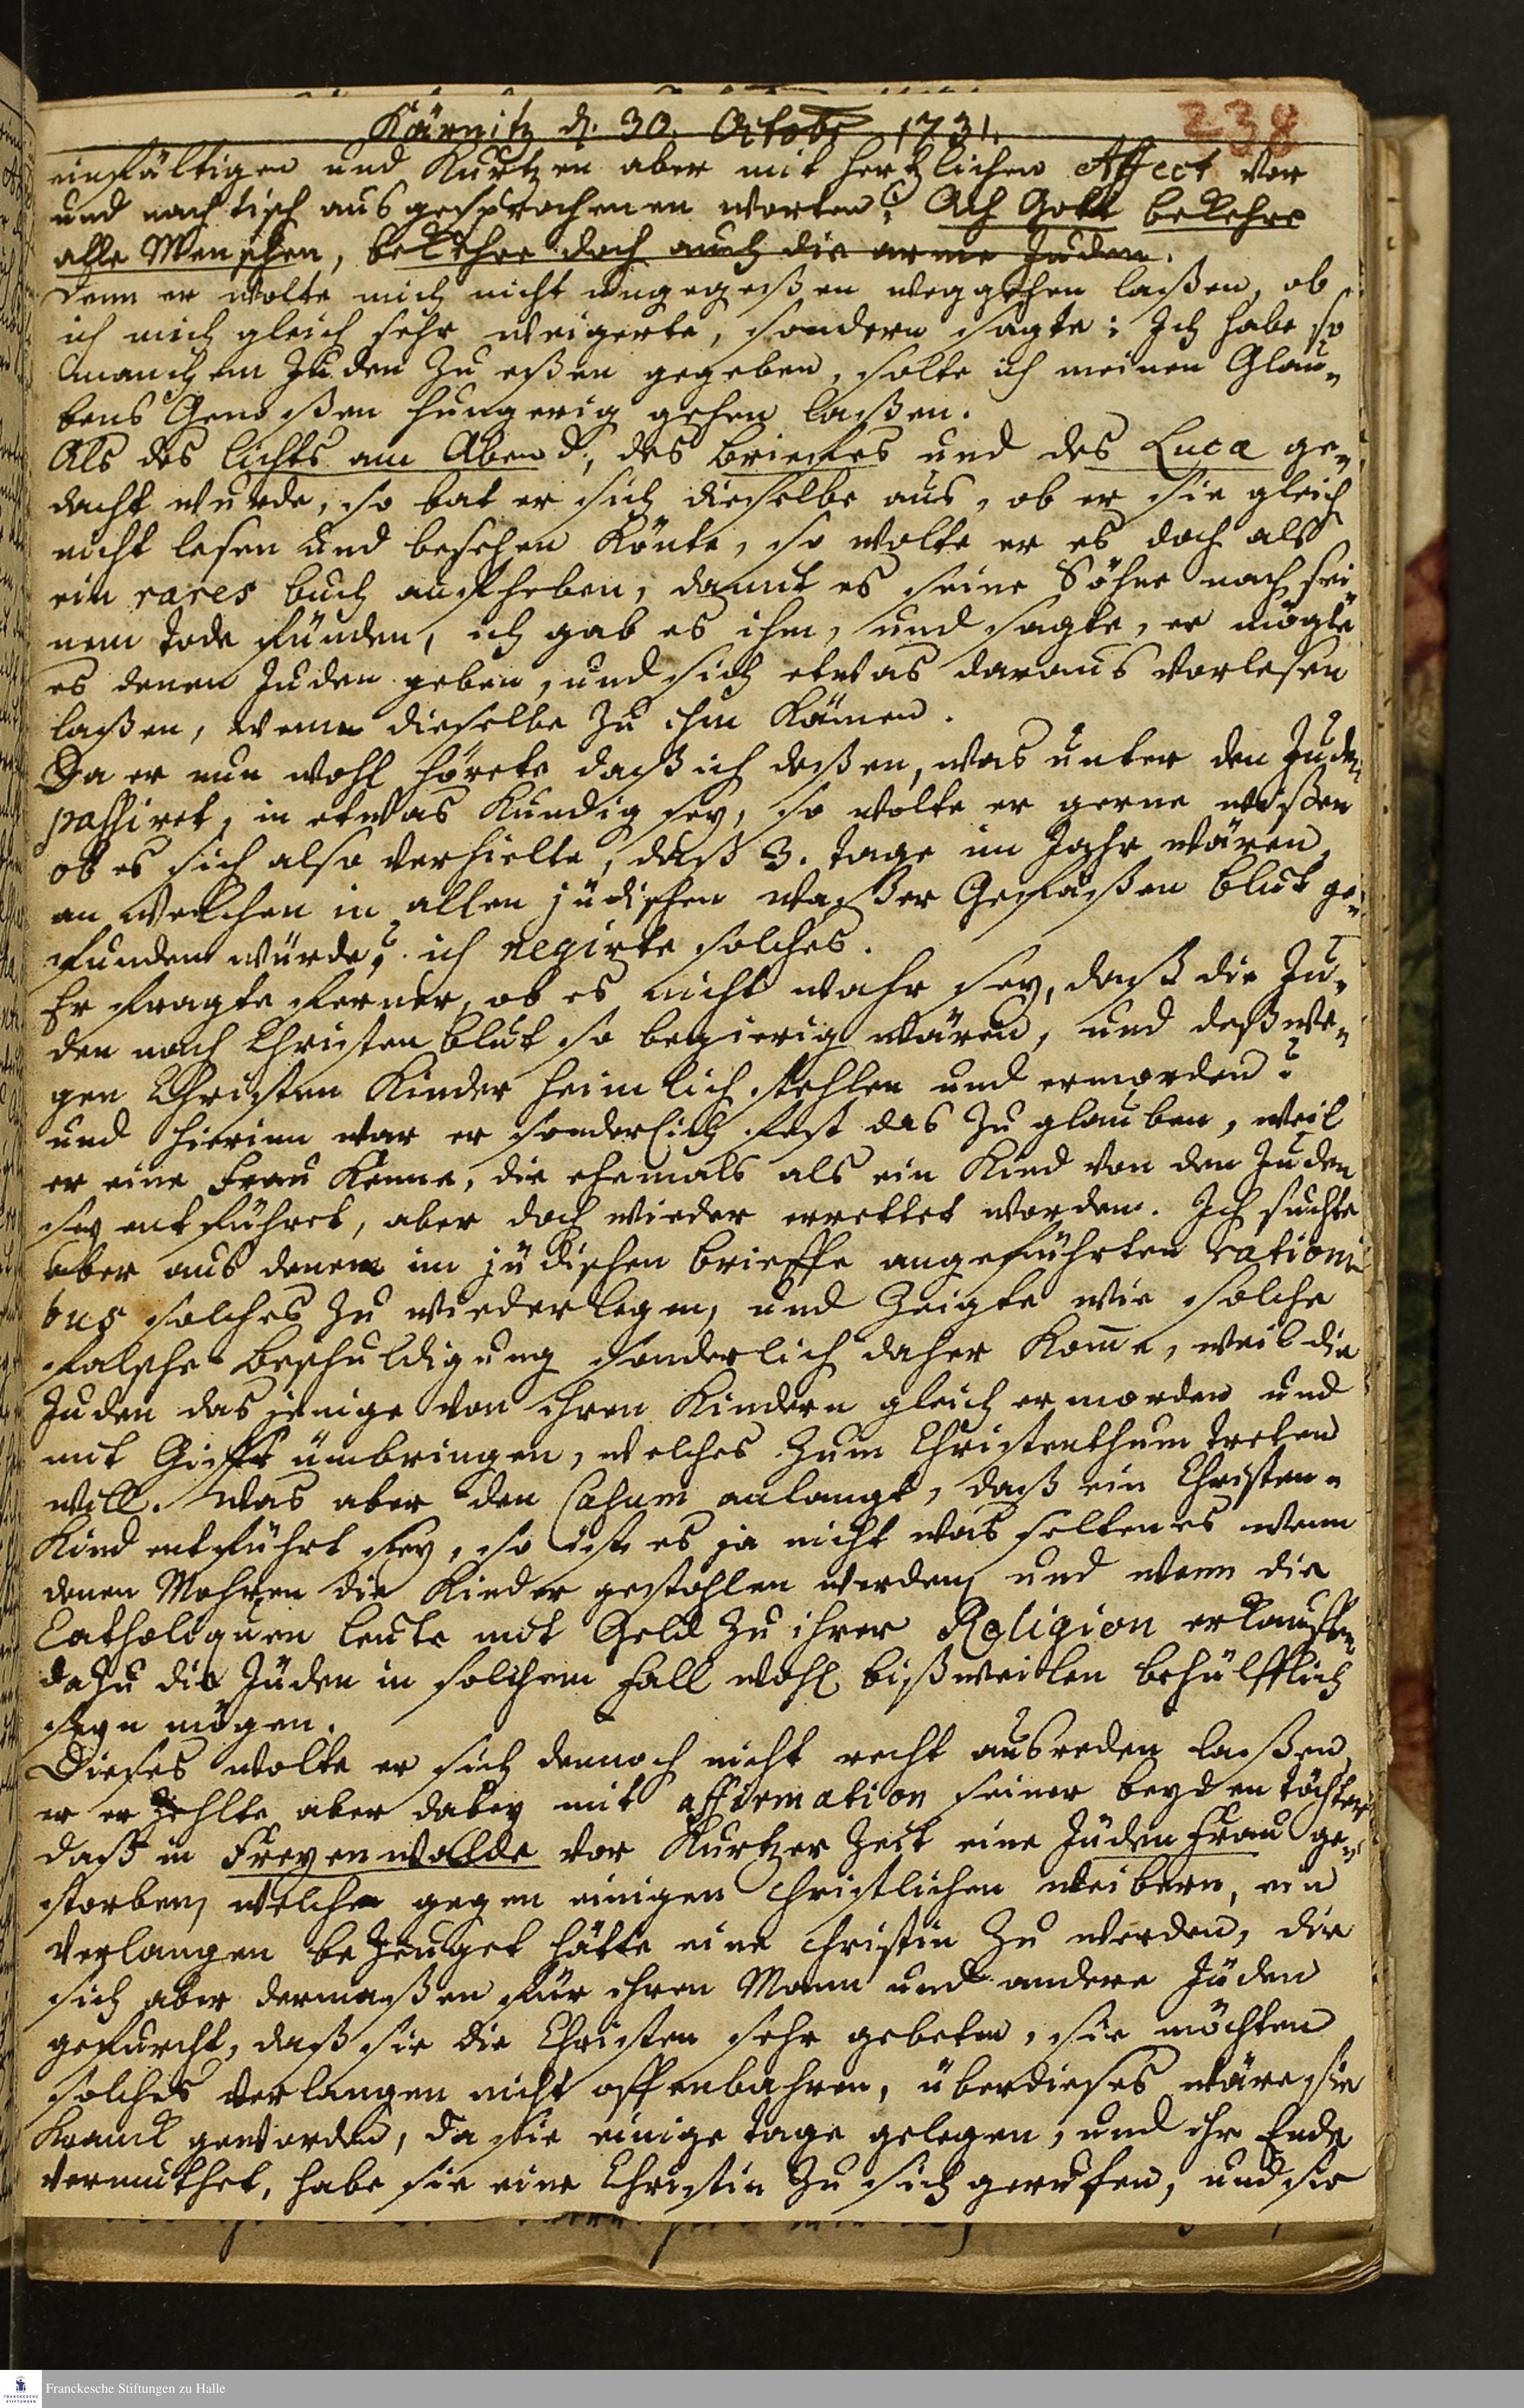 Kärnitz d. 30. Octobr 1731.
238
einfältigen und kurtzen aber mit hertzlichen Affect vor
und nach tisch ausgesprochenen worten: Ach Gott bekehre
alle Menschen, bekehre doch auch die arme Juden.
Denn er wolte mich nicht ungegeßen weggehen laßen, ob
ich mich gleich sehr weigerte, sondern sagte: Ich habe so
manchem Juden zu eßen gegeben, solte ich meinen Glau-
bens Genoßen hungerig gehen laßen.
Als des lichts am Abend, des briefes und des Lucæ ge-
dacht wurde, so bat er sich dieselbe aus, ob er sie gleich
nicht lesen und besehen könte, so wolte er es doch als
ein rares buch aufheben, damit es seine Söhne nach sei-
nem tode fünden, ich gab es ihm, und sagte, er mögte
es denen Juden geben, und sich etwas daraus vorlesen
laßen, wenn dieselbe zu ihm kämen.
Da er nun wohl hörete daß ich deßen, was unter den Juden
passiret, in etwas kundig sey, so wolte er gerne wißen
ob es sich also verhielte, daß 3. tage im Jahr wären,
an welchen in allen jüdischen waßer Gefäßen blut ge-
funden würde? ich negirte solches.
Er fragte ferner, ob es nicht wahr sey, daß die Ju-
den nach Christen blut so begierig wären, und deßwe-
gen Christen Kinder heimlich stehlen und ermorden?
und hierinn war er sonderlich fest das zu glauben, weil
er eine Frau kenne, die ehemals als ein Kind von den Juden
sey entführet, aber doch wieder errettet worden. Ich suchte
aber aus denen im jüdischen brieffe angeführten rationi-
bus solches zu wiederlegen, und zeigte wie solche
falsche beschuldigung sonderlich daher kom̄e, weil die
Juden dasjenige von ihren Kindern gleich ermorden und
mit Gifft ümbringen, welches zum Christenthum treten
will. Was aber den Casum anlangt, daß ein Christen-
Kind entführt sey, so ist es ja nicht was seltenes wenn
denen Mohren die Kinder gestohlen werden, und wenn die
Catholiquen leute mit Geld zu ihrer Religion erkauffen,
dazu die Juden in solchem Fall wohl bißweilen behülfflich
seyn mögen.
Dieses wolte er sich dennoch nicht recht ausreden laßen,
er erzehlte aber dabey mit affirmation seiner beyden töchter,
daß in Freyenwalde vor kurtzer Zeit eine Juden Frau ge-
storben, welche gegen einigen christlichen weibern, ein
Verlangen bezeuget hätte eine christin zu werden, die
sich aber dermaßen für ihren Mann und andere Juden
gefürcht, daß sie die Christen sehr gebeten, sie möchten
solches Verlangen nicht offenbahren, überdieses wäre sie
kranck geworden, da sie einige tage gelegen, und ihr Ende
vermuthet, habe sie eine Christin zu sich gerufen, und sie
Franckesche Stiftungen zu Halle